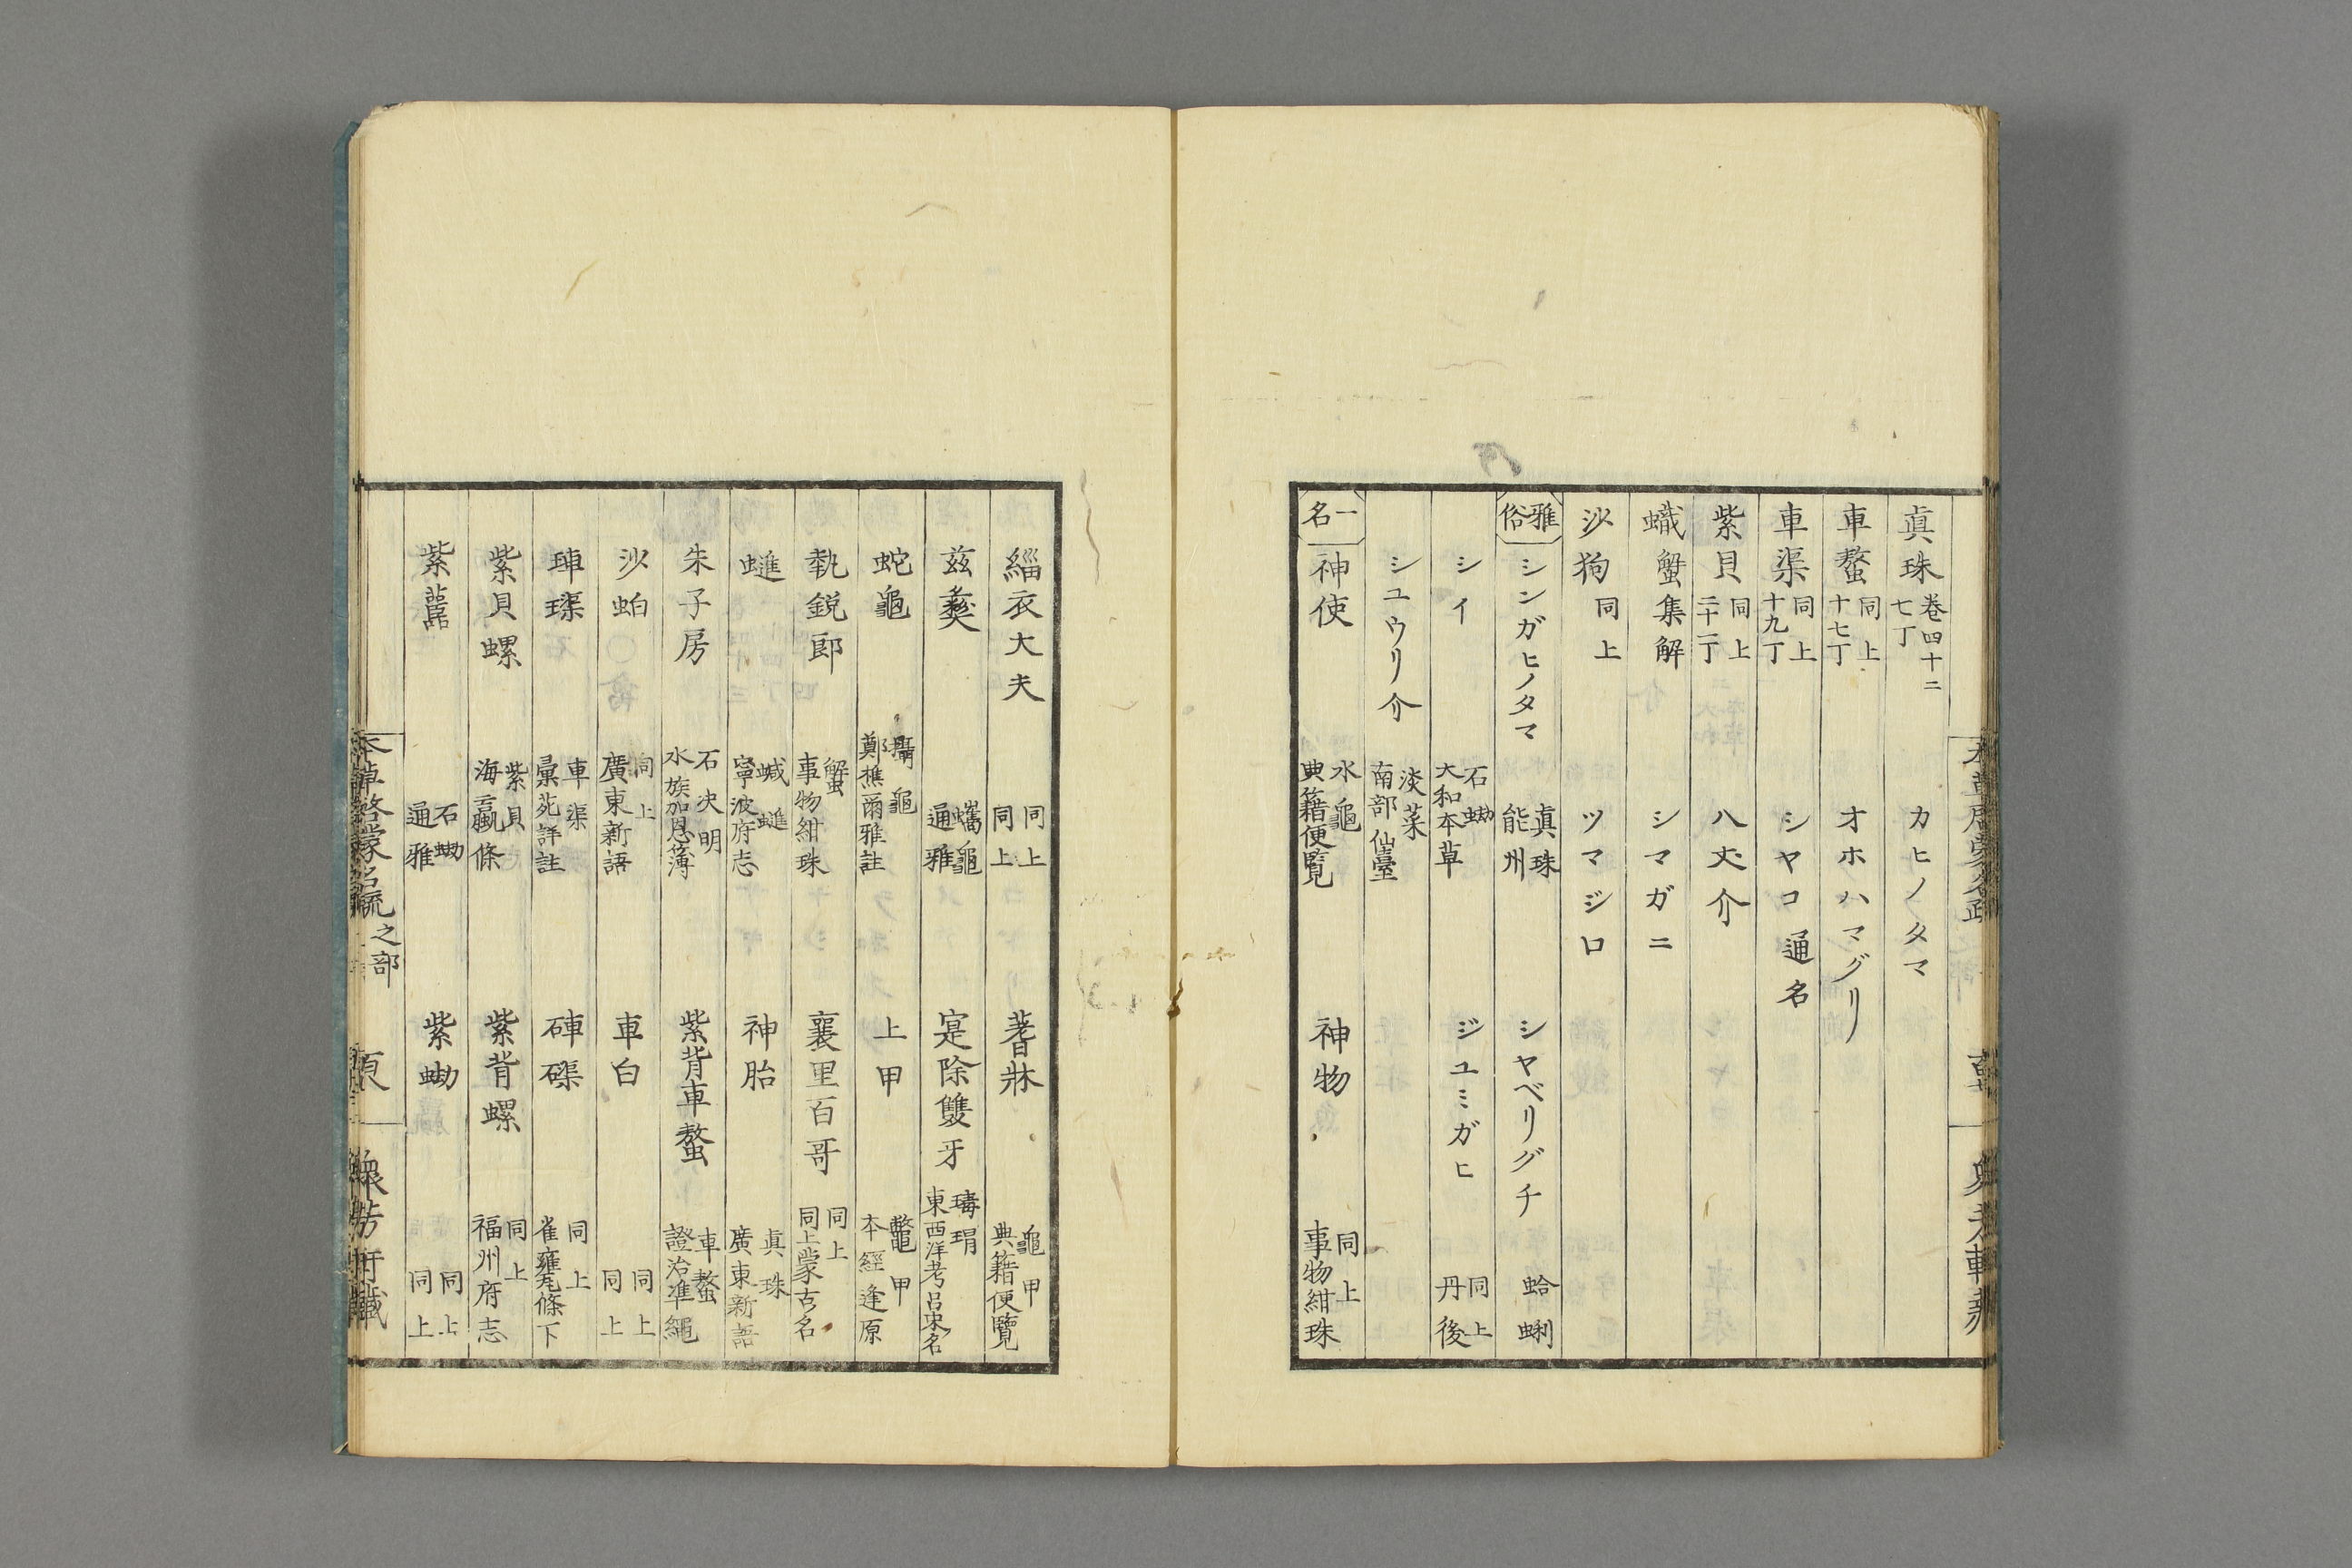 眞珠 巻四十二 七丁 カヒノタマ
車螯 同上 十七丁 オホハマグリ
車渠 同上 十九丁 シヤコ 通名
紫貝 同上 二十一丁 八丈介
蟙蟹集解 シマガニ
沙狗 同上 ツマジロ
雅俗 シンガヒノタマ 眞珠 能州 シヤベリグチ 蛤蜊
シイ 石蜐 大和本草 ジユミガヒ 同上 丹後
シユウリ介 淡菜 南部 仙臺
一名 神使 水龜 典籍便覧 神物 同上 事物紺珠
緇衣大夫 同上 同上 蓍牀 龜甲 典籍便覽
茲彝 蠵龜 通雅 寔除雙牙 瑇瑁 東西洋考呂宋名
蛇龜 攝龜 鄭樵爾雅註 上甲 鼈甲 本經逢原
執鋭郎 蟹 事物紺珠 襄里百哥 同上 同上蒙古名
䗯 蝛䗯 寧波府志 神胎 眞珠 廣東新語
朱子房 石决明 水族加恩簿 紫背車螯 車螯 證治準繩
沙蛤 同上 廣東新語 車白 同上 同上
琿璖 車渠 彙苑詳註 硨磲 同上 雀甕條下
紫貝螺 紫貝 海蠃條 紫背螺 同上 福州府志
紫𧄔 石蜐 通雅 紫蜐 同上 同上
本草啓蒙名疏 之部